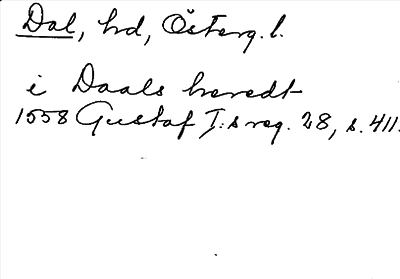 Dal, hd, Österg. l.
i Daals heredt
1558 Gustaf I:s reg. 28, s. 411.